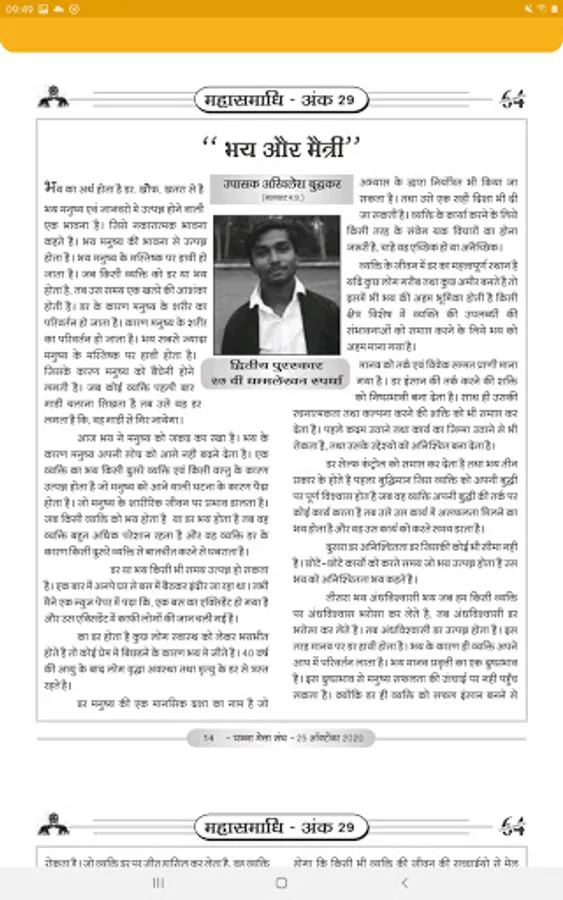 09:49
महासमाधि - अंक 29
64
“ भय और मैत्री”
भय का अर्थ होता है डर, खौफ, खतरा से है
भय मनुष्य एवं जानवरो मे उत्पन्न होने वाली
एक भावना है। जिसे नकारात्मक भावना
कहते है। भय मनुष्य की भावना से उत्पन्न
होता है। भय मनुष्य के मस्तिष्क पर हावी हो
जाता है। जब किसी व्यक्ति को डर या भय
होता है, तब उस समय एक खतरे की आशंका
होती है। डर के कारण मनुष्य के शरीर का
परिवर्तन हो जाता है। कारण मनुष्य के शरीर
का परिवर्तन हो जाता है। भय सबसे ज्यादा
मनुष्य के मस्तिष्क पर हावी होता है।
जिसके कारण मनुष्य को बैचेनी होने
लगती है। जब कोई व्यक्ति पहली बार
गाडी चलाना सिखता है तब उसे यह डर
लगता है कि, वह गाडी से गिर जायेगा।
आज भय ने मनुष्य को जकड कर रखा है। भय के
कारण मनुष्य अपनी सोच को आगे नही बढने देता है। एक
व्यक्ति का भय किसी दुसरे व्यक्ति एवं किसी वस्तु के कारण
उत्पन्न होता है जो मनुष्य को आने वाली घटना के कारण पैदा
होता है। जो मनुष्य के शारीरिक जीवन पर प्रभाव डालता है।
जब किसी व्यक्ति को भय होता है या डर भय होता है तब वह
व्यक्ति बहुत अधिक परेशान रहता है और वह व्यक्ति डर के
कारण किसी दुसरे व्यक्ति से बातचीत करने से घबराता है।
डर या भय किसी भी समय उत्पन्न हो सकता
है। एक बार मैं अपने घर से बस में बैठकर इंदौर जा रहा था। तभी
मैने एक न्यूज पेपर में पढा कि, एक बस का एक्सिडेंट हो गया है
और उस एक्सिडेंट में काफी लोगों की जान चली गई है।
का डर होता है कुछ लोग स्वारथ को लेकर भयभीत
होते है तो कोई प्रेम मे बिछडने के कारण भय मे जीते है। 40 वर्ष
की आयु के बाद लोग वृद्धा अवस्था तथा मृत्यु के डर से त्रस्त
रहते है।
डर मनुष्य की एक मानसिक दशा का नाम है जो
उपासक अखिलेश बुद्धकर
द्वितीय पुरस्कार
२७ वी धम्मलेखन स्पर्धा
अभ्यास के द्वारा नियंत्रित भी किया जा
सकता है। तथा उसे एक सही दिशा भी दी
जा सकती है। व्यक्ति के कार्या करने के लिये
किसी तरह के संवेग यक विचारों का होना
जरूरी है, चाहे वह एच्छिक हो या अनैच्छिक।
व्यक्ति के जीवन में डर का महत्वपूर्ण स्थान है
यदि कुछ लोग गरीब तथा कुछ अमीर बनते है तो
इसमें भी भय की अहम भूमिका होती है किसी
क्षेत्र विशेष में व्यक्ति की उपलब्धी की
संभावनाओं को समाप्त करने के लिये भय को
अहम माना गया है।
मानव को तर्क एवं विवेक सम्मत प्राणी माना
गया है। डर इंसान की तर्क करने की शक्ति
को निष्प्रभावी बना देता है। साथ ही उसकी
रचनात्मकता तथा कल्पना करने की शक्ति को भी समाप्त कर
देता है। पहले कदम उठाने तथा कार्य का जिम्मा उठाने से भी
रोकता है, तथा उसके उद्देश्यो को अनिश्चित बना देता है।
डर सेल्फ कंट्रोल को समाप्त कर देता है तथा भय तीन
प्रकार के होते है पहला बुद्धिमान जिस व्यक्ति को अपनी बुद्धी
पर पूर्ण विश्वास होत है जब वह व्यक्ति अपनी बुद्धी की तर्क पर
कोई कार्य करता है तब उसे उस कार्य में असफलता मिलने का
भय होता है और वह उस कार्य को करते समय डरता है।
दुसरा डर अनिश्चितता डर जिसकी कोई भी सीमा नही
है। छोटे-छोटे कार्यो को करते समय जो भय उत्पन्न होता है उस
भय को अनिश्चितता भय कहते है।
तीसरा भय अंधविश्वासी भय जब हम किसी व्यक्ति
पर अंधविश्वास भरोसा कर लेते है, तब अंधविश्वासी डर
भरोसा कर लेते है। तब अंधविश्वासी डर उत्पन्न होता है। इस
तरह मानव पर डर हावी होता है। भय के कारण ही व्यक्ति अपने
आप में परिवर्तन लाता है। भय मानव प्रवृती का एक दुष्प्रभाव
है। इस दुष्प्रभाव से मनुष्य सफलता की उंचाई पर नही पहुँच
सकता है। क्योंकि डर ही व्यक्ति को सफल इंसान बनने से
14 - धम्म मैत्री संघ - 25 ऑक्टोबर 2020
महासमाधि - अंक 29
64
रोकता है। जो व्यक्ति डर पर जीत हासिल कर लेता है, वह व्यक्ति
होगा कि किसी भी व्यक्ति की जीवन की सच्चाईयो से मेल